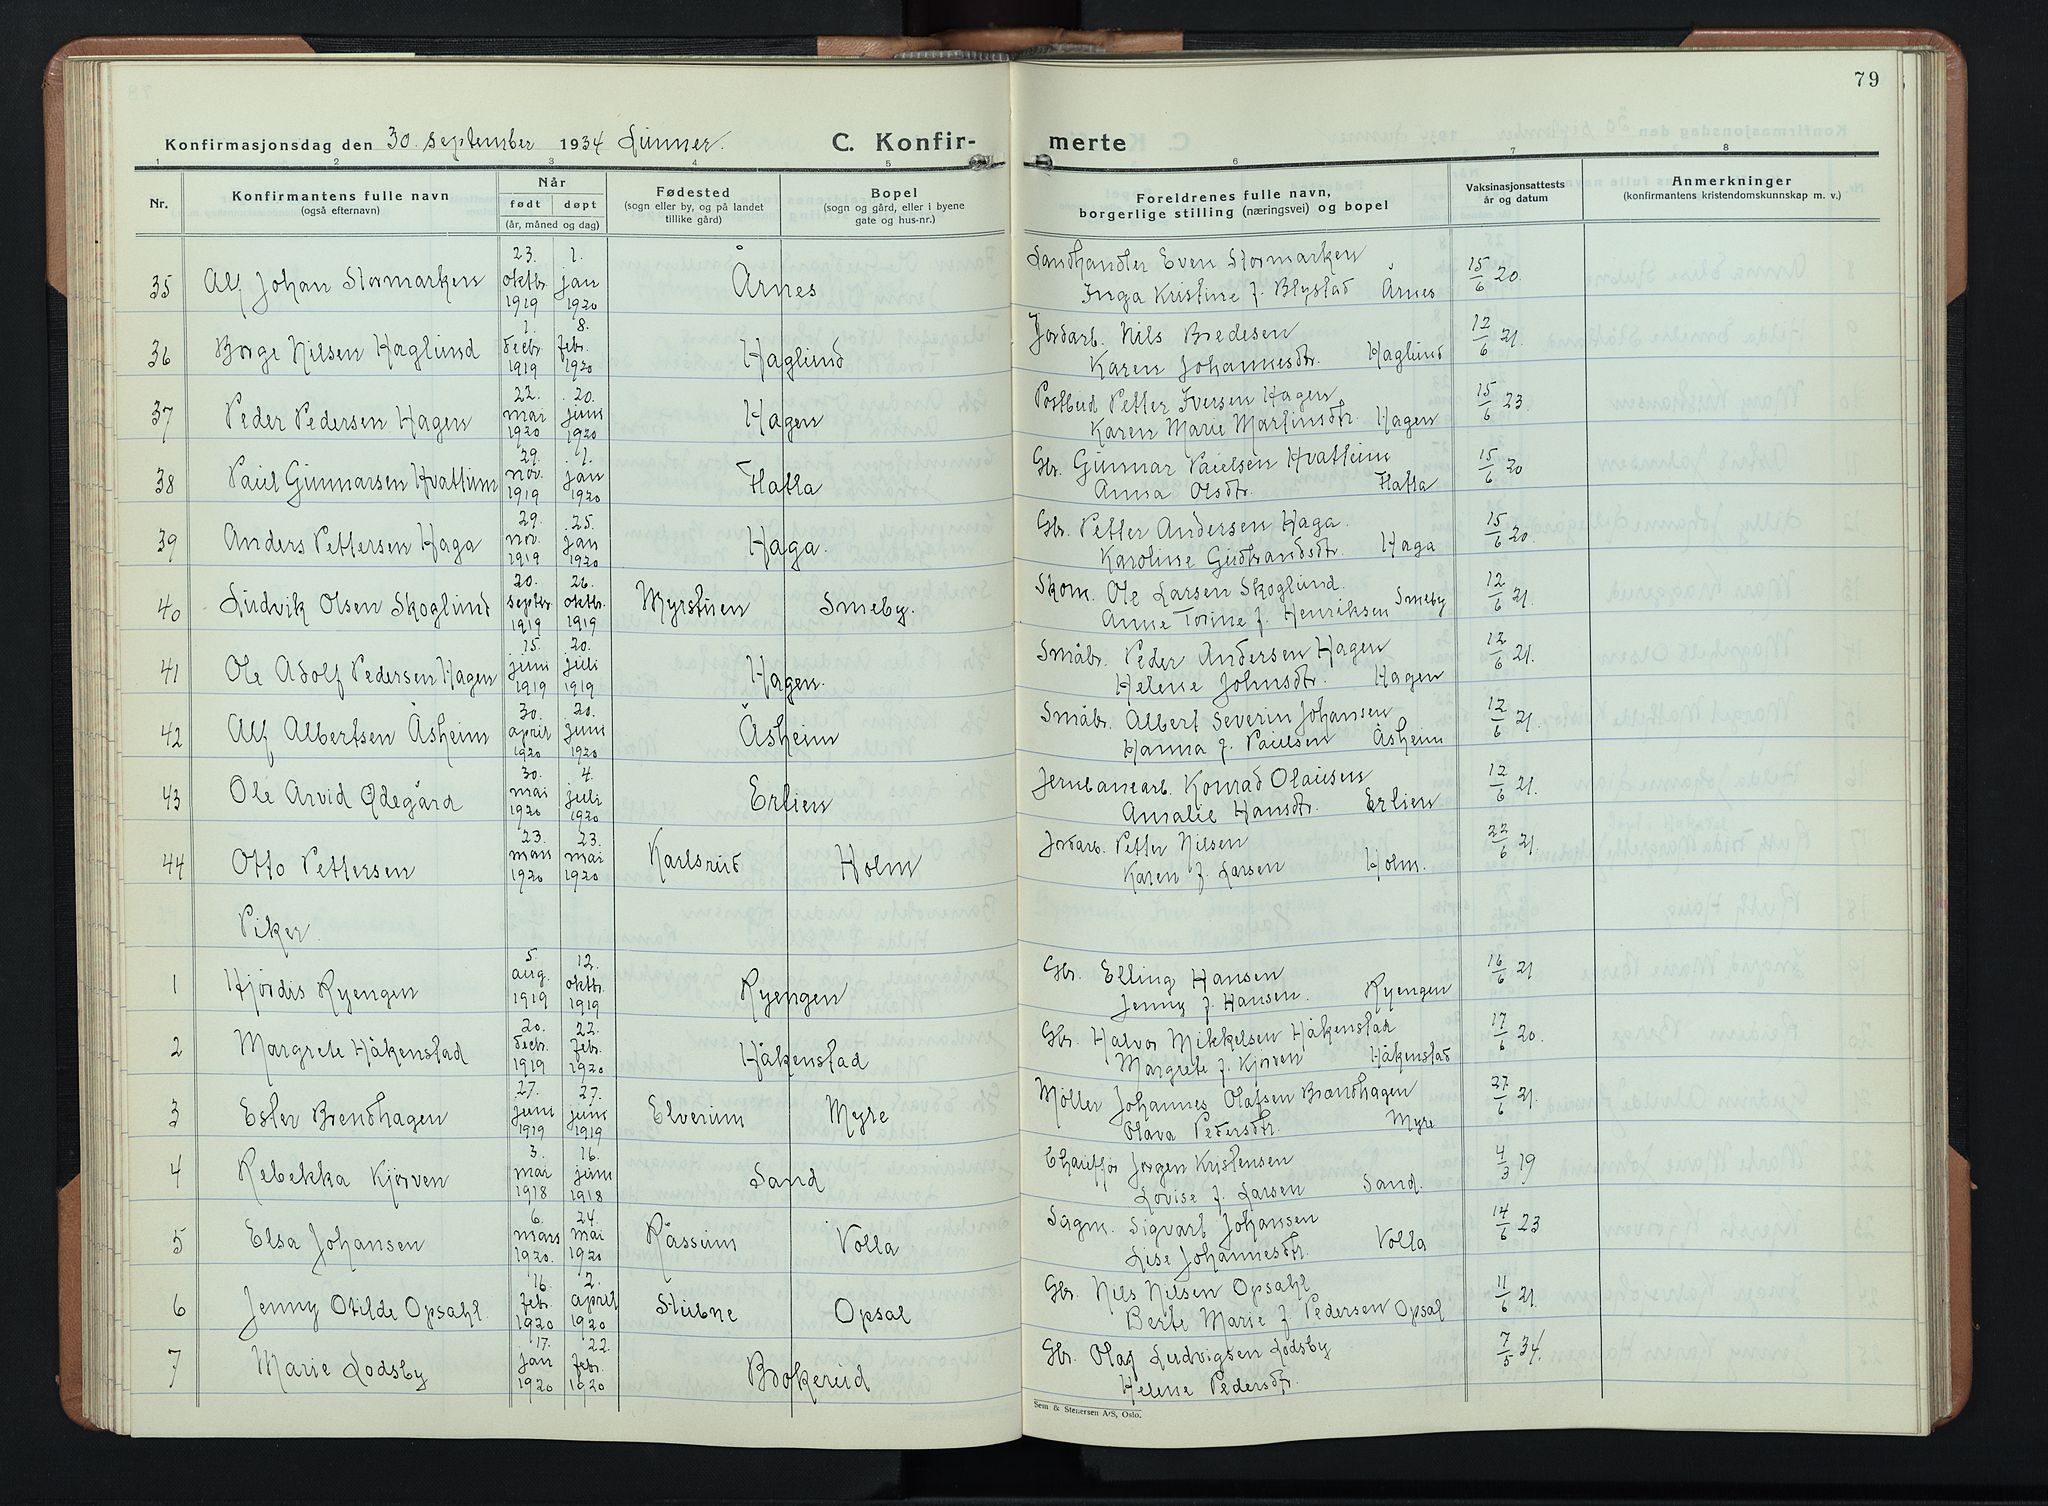 79
Konfirmasjonsdag den 30. september 1934 Lunner. C. Konfirmerte
1 2 3 4 5 6 7 8
Nr. Konfirmantens fulle navn (også efternavn) Når født døpt (år, måned og dag) Fødested (sogn eller by, og på landet tillike gård) Bopel (sogn og gård, eller i byene gate og hus-nr.) Foreldrenes fulle navn, borgerlige stilling (næringsvei) og bopel Vaksinasjonsattests år og datum Anmerkninger (konfirmantens kristendomskunnskap m. v.)
35 Alf Johan Stormarken 23. oktbr. 1919 1. jan 1920 Årnes Landhandler Even Stormarken
Inga Kristine f. Blystad Årnes 15/6 20.
36 Borge Nilsen Haglund 1. decbr. 1919 8. febr. 1920 Haglund Jordarb. Nils Bredesen
Karen Johannesdtr. Haglund 12/6 21.
37 Peder Pedersen Hagen 22. mai 1920 20. juni 1920 Hagen Postbud Petter Iversen Hagen
Karen Marie Martinsdtr. Hagen 15/6 23.
38 Paul Gunnarsen Hvattum 29. nov. 1919 1. jan 1920 Flatla Gbr. Gunnar Paulsen Hvattum
Anna Olsdtr. Flatla 15/6 20
39 Anders Pettersen Haga 29. nov. 1919 25. jan 1920 Haga. Gbr. Petter Andersen Haga.
Karoline Gudbrandsdtr. Haga 15/6 20.
40 Ludvik Olsen Skoglund 20. septbr. 1919 26. oktbr. 1919 Myrstuen Smeby. Skom. Ole Larsen Skoglund.
Anne Torine f. Henriksen Smeby 12/6 21.
41 Ole Adolf Pedersen Hagen 15. juni 1919 20. juli 1919 Hagen. Småbr. Peder Andersen Hagen
Helene Johnsdtr. Hagen 12/6 21.
42 Alf Albertsen Åsheim 30. april 1920 20. juni 1920 Åsheim Småbr. Albert Severin Johansen
Hanna f. Paulsen Åsheim 12/6 21.
43 Ole Arvid Ødegård 30. mai 1920 4. juli 1920 Erlien Jernbanearb. Konrad Olausen
Amalie Hansdtr. Erlien 12/6 21.
44 Otto Pettersen 23. mars 1920 23. mai 1920 Karlsrud Holm Jordarb. Petter Nilsen
Karen f. Larsen Holm. 22/6 21.
Piker.
1 Hjørdis Ryengen 5. aug. 1919 12. oktbr. 1919 Ryengen Gbr. Elling Hansen
Jenny f. Hansen. Ryengen 16/6 21.
2 Margrete Håkenstad 20. decbr. 1919 22. febr. 1920 Håkenstad Gbr. Halvor Mikkelsen Håkenstad
Margrete f. Kjørven Håkenstad 17/6 20.
3 Ester Brendhagen 27. juni 1919 27. juni 1919 Elverum Myre Møller Johannes Olafsen Brendhagen
Olava Pedersdtr. Myre 27/6 21.
4 Rebekka Kjørven 3. mai 1918 16. juni 1918 Sand Chauffør Jørgen Kristensen
Lovise f. Larsen Sand. 4/3 19
5 Elsa Johansen 6. mars 1920. 24. mai 1920 Råssum Volla Sagm. Sigvart Johansen
Lise Johannesdtr. Volla 14/6 23
6 Jenny Otilde Opsahl. 16. febr. 1920 2. april 1920 Stubne Opsal Gbr. Nils Nilsen Opsahl
Berte Marie f. Pedersen Opsal 11/6 21.
7 Marie Lodsby 17. jan 1920 22. febr. 1920 Bokerud Gbr. Olaf Ludvigsen Lodsby
Helene Pedersdtr. 7/5 34.
Sem & Stenersen A/S, Oslo.